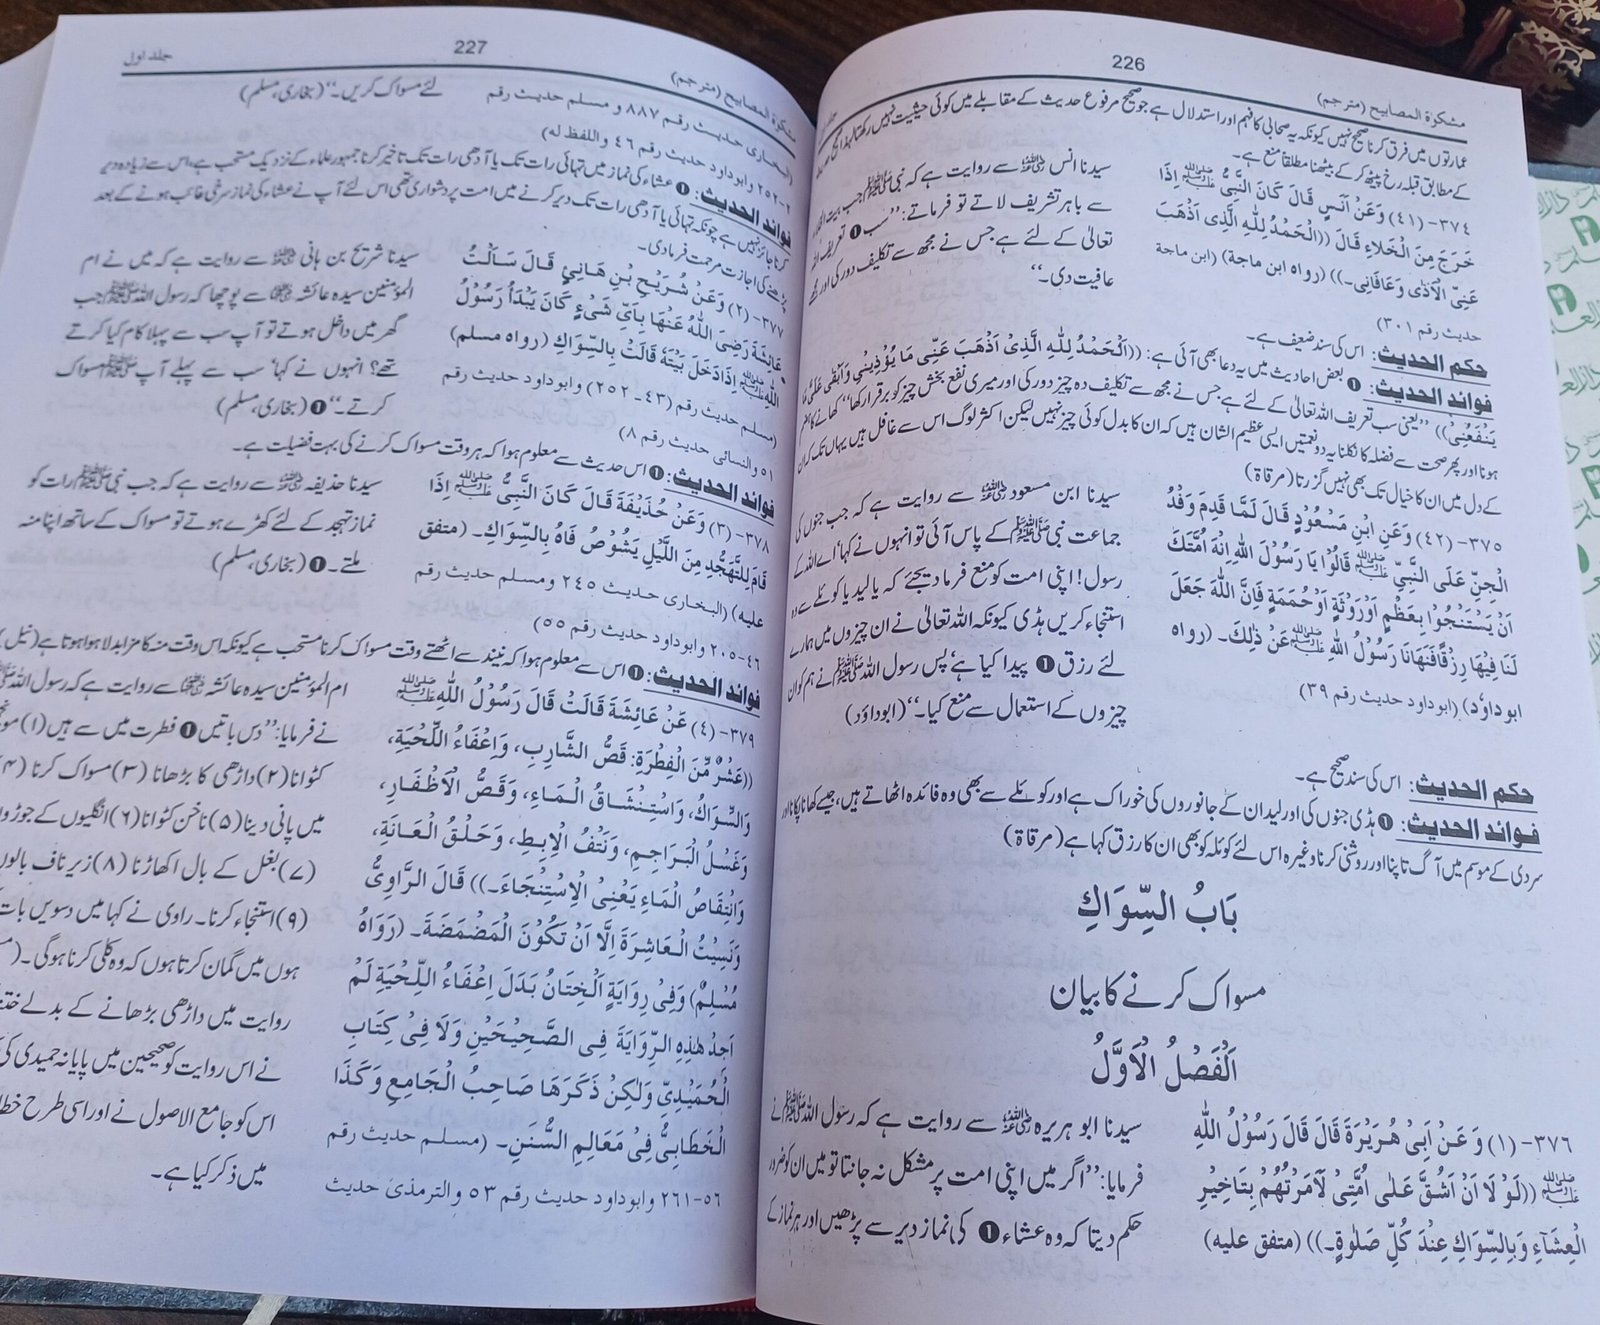 226
مشکوٰۃ المصابیح (مترجم)
عمارتوں میں فرق کرنا صحیح نہیں کیونکہ یہ صحابی کا فہم اور استدلال ہے جو صحیح مرفوع حدیث کے مقابلے میں کوئی حیثیت نہیں رکھتا لہذا
کے مطابق قبلہ رخ پیٹھ کر کے بیٹھنا مطلقا منع ہے۔
٣٧٤- (٤١) وَعَنْ اَنَسٍ قَالَ كَانَ النَّبِيُّ ﷺ اِذَا
خَرَجَ مِنَ الْخَلَاءِ قَالَ ((الْحَمْدُ لِلّٰهِ الَّذِى اَذْهَبَ
عَنِّى الْاَذٰى وَعَافَانِى۔)) (رواه ابن ماجة) (ابن ماجة
حديث رقم ٣٠١)
سیدنا انس ﷜ سے روایت ہے کہ نبی ﷺ جب بیت الخلاء
سے باہر تشریف لاتے تو فرماتے: ’’سب ❶ تعریف اللہ
تعالیٰ کے لئے ہے جس نے مجھ سے تکلیف دور کی اور مجھے
عافیت دی۔‘‘
حکم الحدیث: اس کی سند ضعیف ہے۔
فوائد الحدیث: ❶ بعض احادیث میں یہ دعا بھی آئی ہے: ((اَلْحَمْدُ لِلّٰهِ الَّذِىْ اَذْهَبَ عَنِّى مَا يُؤْذِيْنِى وَاَبْقٰى عَلَىَّ مَا
يَنْفَعُنِىْ)) ’’یعنی سب تعریف اللہ تعالیٰ کے لئے ہے جس نے مجھ سے تکلیف دہ چیز دور کی اور میری نفع بخش چیز کو برقرار رکھا‘‘ کھانے کا ہضم
ہونا اور پھر صحت سے فضلہ کا نکلنا یہ دو نعمتیں ایسی عظیم الشان ہیں کہ ان کا بدل کوئی چیز نہیں لیکن اکثر لوگ اس سے غافل ہیں یہاں تک کہ ان
کے دل میں ان کا خیال تک بھی نہیں گزرتا (مرقاۃ)
٣٧٥- (٤٢) وَعَنِ ابْنِ مَسْعُوْدٍ قَالَ لَمَّا قَدِمَ وَفْدُ
الْجِنِّ عَلَى النَّبِىِّ ﷺ قَالُوْا يَا رَسُوْلَ اللهِ اِنْهَ اُمَّتَكَ
اَنْ يَسْتَنْجُوْا بِعَظْمٍ اَوْ رَوْثَةٍ اَوْ حُمَمَةٍ فَاِنَّ اللهَ جَعَلَ
لَنَا فِيْهَا رِزْقًا فَنَهَانَا رَسُوْلُ اللهِ ﷺ عَنْ ذٰلِكَ۔ (رواه
ابو داوٗد) (ابو داود حديث رقم ٣٩)
سیدنا ابن مسعود ﷜ سے روایت ہے کہ جب جنوں کی
جماعت نبی ﷺ کے پاس آئی تو انہوں نے کہا، اے اللہ کے
رسول! اپنی امت کو منع فرما دیجئے کہ یا لید یا کوئلے سے وہ
استنجاء کریں ہڈی کیونکہ اللہ تعالیٰ نے ان چیزوں میں ہمارے
لئے رزق ❶ پیدا کیا ہے، پس رسول اللہ ﷺ نے ہم کو ان
چیزوں کے استعمال سے منع کیا۔‘‘ (ابوداؤد)
حکم الحدیث: اس کی سند صحیح ہے۔
فوائد الحدیث: ❶ ہڈی جنوں کی اور لید ان کے جانوروں کی خوراک ہے اور کوئلے سے بھی وہ فائدہ اٹھاتے ہیں، جیسے کھانا پکانا اور
سردی کے موسم میں آگ تاپنا اور روشنی کرنا وغیرہ اس لئے کوئلہ کو بھی ان کا رزق کہا ہے (مرقاۃ)
بَابُ السِّوَاكِ
مسواک کرنے کا بیان
اَلْفَصْلُ الْاَوَّلُ
٣٧٦- (١) وَعَنْ اَبِىْ هُرَيْرَةَ قَالَ قَالَ رَسُوْلُ اللّٰهِ
ﷺ ((لَوْ لَا اَنْ اَشُقَّ عَلٰى اُمَّتِىْ لَاَمَرْتُهُمْ بِتَاخِيْرِ
الْعِشَاءِ وَبِالسِّوَاكِ عِنْدَ كُلِّ صَلٰوةٍ۔)) (متفق عليه)
سیدنا ابو ہریرہ ﷜ سے روایت ہے کہ رسول اللہ ﷺ نے
فرمایا: ’’اگر میں اپنی امت پر مشکل نہ جانتا تو میں ان کو ضرور
حکم دیتا کہ وہ عشاء ❶ کی نماز دیر سے پڑھیں اور ہر نماز کے
227
جلد اول
مشکوٰۃ المصابیح (مترجم)
لئے مسواک کریں۔‘‘ (بخاری، مسلم)
(البخارى حديث رقم ٨٨٧ و مسلم حديث رقم
٢٥٢-٢ وابوداود حديث رقم ٤٦ واللفظ له)
فوائد الحدیث: ❶ عشاء کی نماز میں تہائی رات تک یا آدھی رات تک تاخیر کرنا جمہور علماء کے نزدیک مستحب ہے، اس سے زیادہ دیر
کرنا جائز نہیں ہے چونکہ تہائی یا آدھی رات تک دیر کرنے میں امت پر دشواری تھی اس لئے آپ نے عشاء کی نماز سرخی غائب ہونے کے بعد
پڑھنے کی اجازت مرحمت فرما دی۔
٣٧٧- (٢) وَعَنْ شُرَيْحِ بْنِ هَانِئٍ قَالَ سَاَلْتُ
عَائِشَةَ رَضِىَ اللّٰهُ عَنْهَا بِاَىِّ شَىْءٍ كَانَ يَبْدَأُ رَسُوْلُ
اللّٰهِ ﷺ اِذَا دَخَلَ بَيْتَهٗ قَالَتْ بِالسِّوَاكِ (رواه مسلم)
(مسلم حديث رقم (٤٣-٢٥٢) وابوداود حديث رقم
٥١ والنسائى حديث رقم ٨)
سیدنا شریح بن ہانی ﷫ سے روایت ہے کہ میں نے ام
المؤمنین سیدہ عائشہ ﷞ سے پوچھا کہ رسول اللہ ﷺ جب
گھر میں داخل ہوتے تو آپ سب سے پہلا کام کیا کرتے
تھے؟ انہوں نے کہا’ سب سے پہلے آپ ﷺ مسواک
کرتے۔‘‘ ❶ (بخاری، مسلم)
فوائد الحدیث: ❶ اس حدیث سے معلوم ہوا کہ ہر وقت مسواک کرنے کی بہت فضیلت ہے۔
٣٧٨- (٣) وَعَنْ حُذَيْفَةَ قَالَ كَانَ النَّبِىُّ ﷺ اِذَا
قَامَ لِلتَّهَجُّدِ مِنَ اللَّيْلِ يَشُوْصُ فَاهُ بِالسِّوَاكِ۔ (متفق
عليه) (البخارى حديث ٢٤٥ ومسلم حديث رقم
٤٦-٢٠٥ وابوداود حديث رقم ٥٥)
سیدنا حذیفہ ﷜ سے روایت ہے کہ جب نبی ﷺ رات کو
نماز تہجد کے لئے کھڑے ہوتے تو مسواک کے ساتھ اپنا منہ
ملتے۔ ❶ (بخاری، مسلم)
فوائد الحدیث: ❶ اس سے معلوم ہوا کہ نیند سے اٹھتے وقت مسواک کرنا مستحب ہے کیونکہ اس وقت منہ کا مزا بدلا ہوا ہوتا ہے (نیل)
٣٧٩- (٤) عَنْ عَائِشَةَ قَالَتْ قَالَ رَسُوْلُ اللّٰهِ ﷺ
((عَشْرٌ مِّنَ الْفِطْرَةِ: قَصُّ الشَّارِبِ، وَاِعْفَاءُ اللِّحْيَةِ،
وَالسِّوَاكُ، وَاسْتِنْشَاقُ الْمَاءِ، وَقَصُّ الْاَظْفَارِ،
وَغَسْلُ الْبَرَاجِمِ، وَنَتْفُ الْاِبِطِ، وَحَلْقُ الْعَانَةِ،
وَانْتِقَاصُ الْمَاءِ يَعْنِى الْاِسْتِنْجَاءَ۔)) قَالَ الرَّاوِىُّ
وَنَسِيْتُ الْعَاشِرَةَ اِلَّا اَنْ تَكُوْنَ الْمَضْمَضَةَ۔ (رَوَاهُ
مُسْلِمٌ) وَفِىْ رِوَايَةٍ اَلْخِتَانُ بَدَلَ اِعْفَاءُ اللِّحْيَةِ لَمْ
اَجِدْ هٰذِهِ الرِّوَايَةَ فِى الصَّحِيْحَيْنِ وَلَا فِىْ كِتَابِ
الْحُمَيْدِىِّ وَلٰكِنْ ذَكَرَهَا صَاحِبُ الْجَامِعِ وَكَذَا
الْخَطَابِىُّ فِىْ مَعَالِمِ السُّنَنِ۔ (مسلم حديث رقم
٥٦-٢٦١ وابوداود حديث رقم ٥٣ والترمذى حديث
ام المؤمنین سیدہ عائشہ ﷞ سے روایت ہے کہ رسول اللہ ﷺ
نے فرمایا: ’’دس باتیں ❶ فطرت میں سے ہیں (۱)
کٹوانا (۲) داڑھی کا بڑھانا (۳) مسواک کرنا (۴)
میں پانی دینا (۵) ناخن کٹوانا (۶) انگلیوں کے جوڑ
(۷) بغل کے بال اکھاڑنا (۸) زیر ناف بالوں
(۹) استنجاء کرنا۔ راوی نے کہا میں دسویں بات
ہوں میں گمان کرتا ہوں کہ وہ کلی کرنا ہوگی۔ (
روایت میں داڑھی بڑھانے کے بدلے
نے اس روایت کو صحیحین میں پایا نہ حمیدی کی
اس کو جامع الاصول نے اور اسی طرح
میں ذکر کیا ہے۔